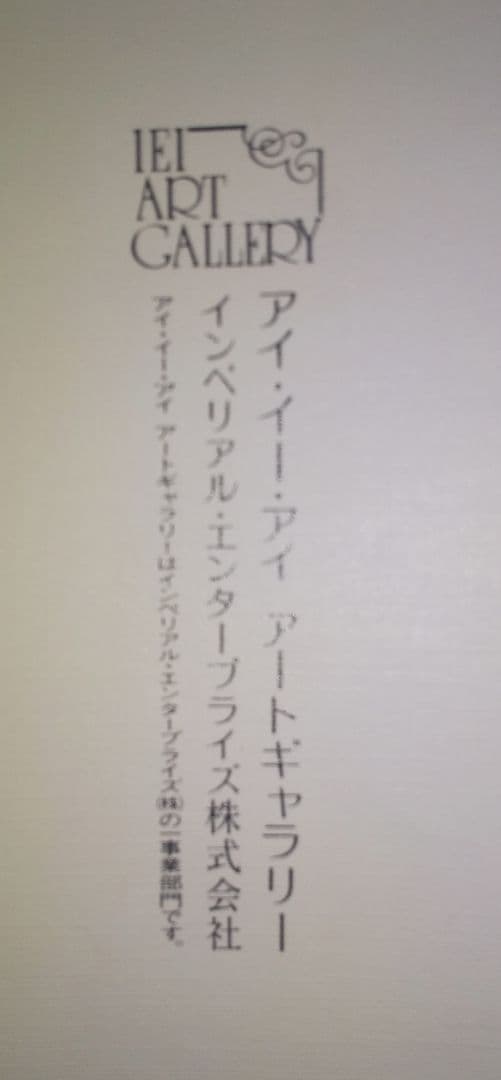 IEI
ART
GALLERY
アイ・イー・アイ アートギャラリー
インペリアル・エンタープライズ株式会社
アイ・イー・アイ アートギャラリーはインペリアル・エンタープライズ㈱の一事業部門です。